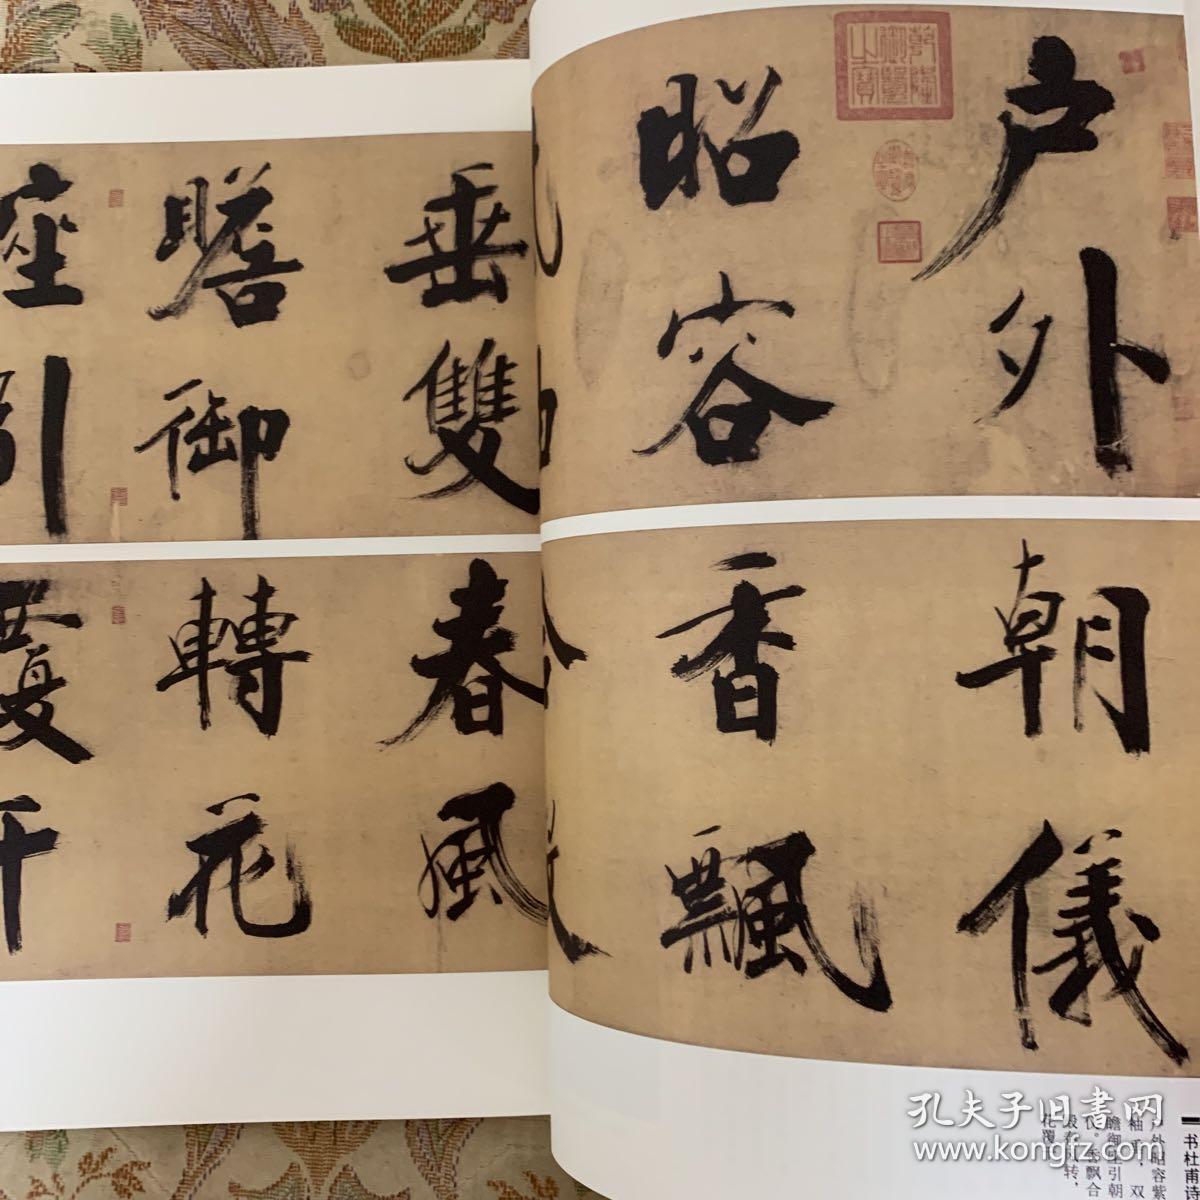 户外
昭容
垂雙
瞻御
座引
朝儀
香飄
春風
轉花
覆千
书杜甫诗
户外昭容紫
袖垂，双
瞻御座引朝
仪。香飘合
殿春风转，
花覆
孔夫子旧书网
www.kongfz.com